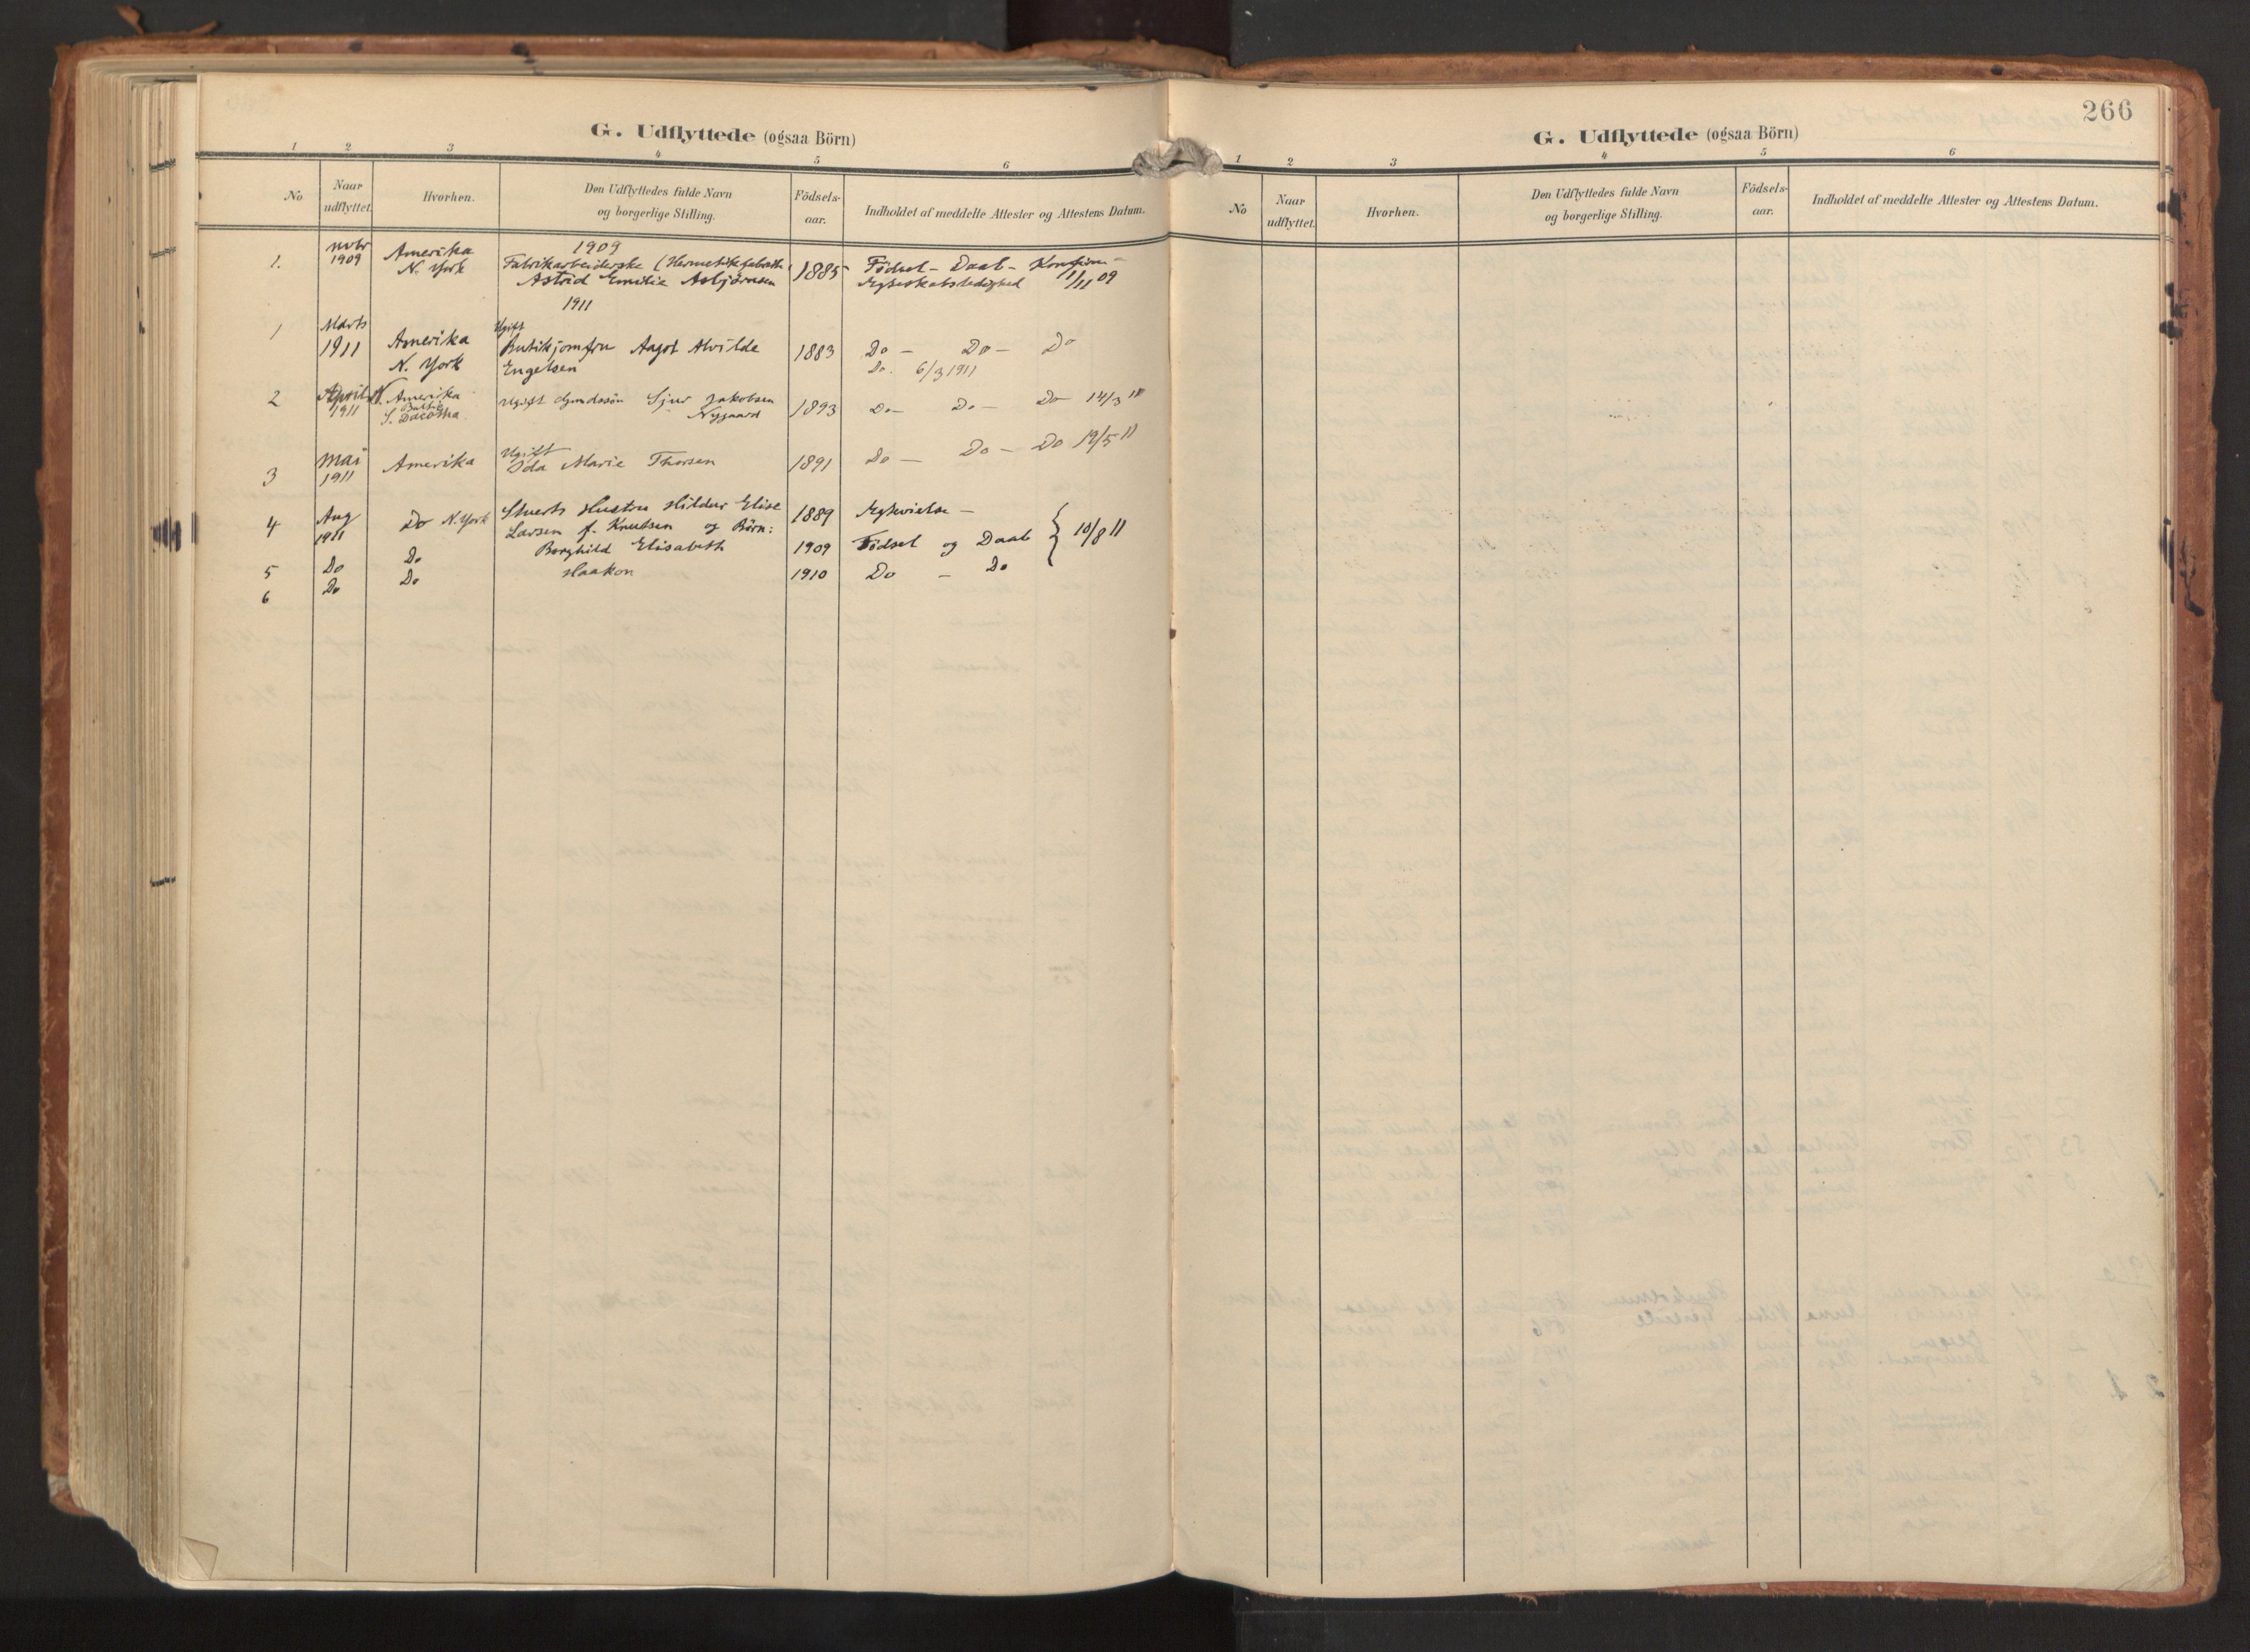 266
G. Udflyttede (ogsaa Börn)
1 2 3 4 5 6
No
Naar udflyttet.
Hvorhen.
Den Udflyttedes fulde Navn
og borgerlige Stilling.
Födsels-
aar.
Indholdet af meddelte Attester og Attestens Datum.
1909
1. Novbr 1909 Amerika Fabrikarbeiderske (Hermetikfabrik) 1885 Födsel - Daab - Konfirm-
N. York Astrid Emilie Asbjörnsen Ægteskabsledighed 1/11 09
1911
1 Marts 1911 Amerika Ugift Butikjomfru Aagot Alvilde 1883 Do - Do - Do
N. York Engelsen Do. 6/3 1911
2 April 1911 N. Amerika Ugift Sjur Jakobsen 1893 Do - Do - Do 14/3 11
S. Dacotha Nygaard
3 Mai 1911 Amerika Ugift Ida Marie Thorsen 1891 Do - Do - Do 19/5 11
4 Aug 1911 Do N. York Hustru Hildur Elise 1889 Ægtevielse -
Larsen f. Knutsen og Börn:
5 Do Do Borghild Elisabeth 1909 Födsel og Daab } 10/8 11
6 Do Do Haakon 1910 Do - Do
G. Udflyttede (ogsaa Börn)
1 2 3 4 5 6
No
Naar
udflyttet.
Hvorhen.
Den Udflyttedes fulde Navn
og borgerlige Stilling.
Födsels-
aar.
Indholdet af meddelte Attester og Attestens Datum.